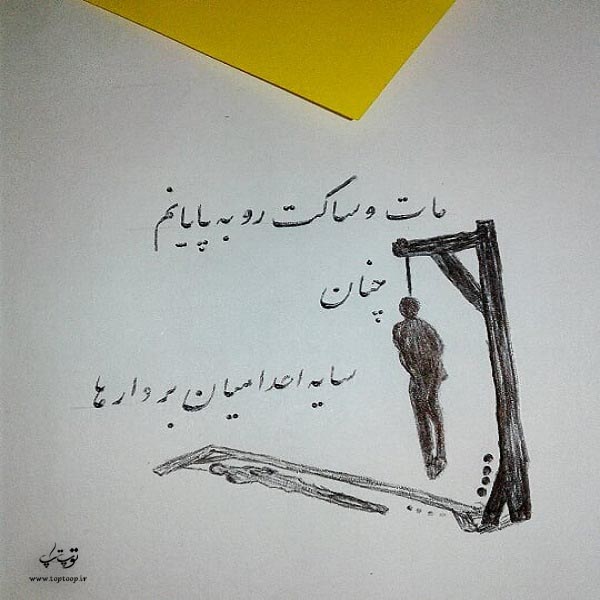 مات و ساکت رو به پایانم
چنان
سایه اعدامیان بر دارها
توپ تاپ
www.toptoop.ir